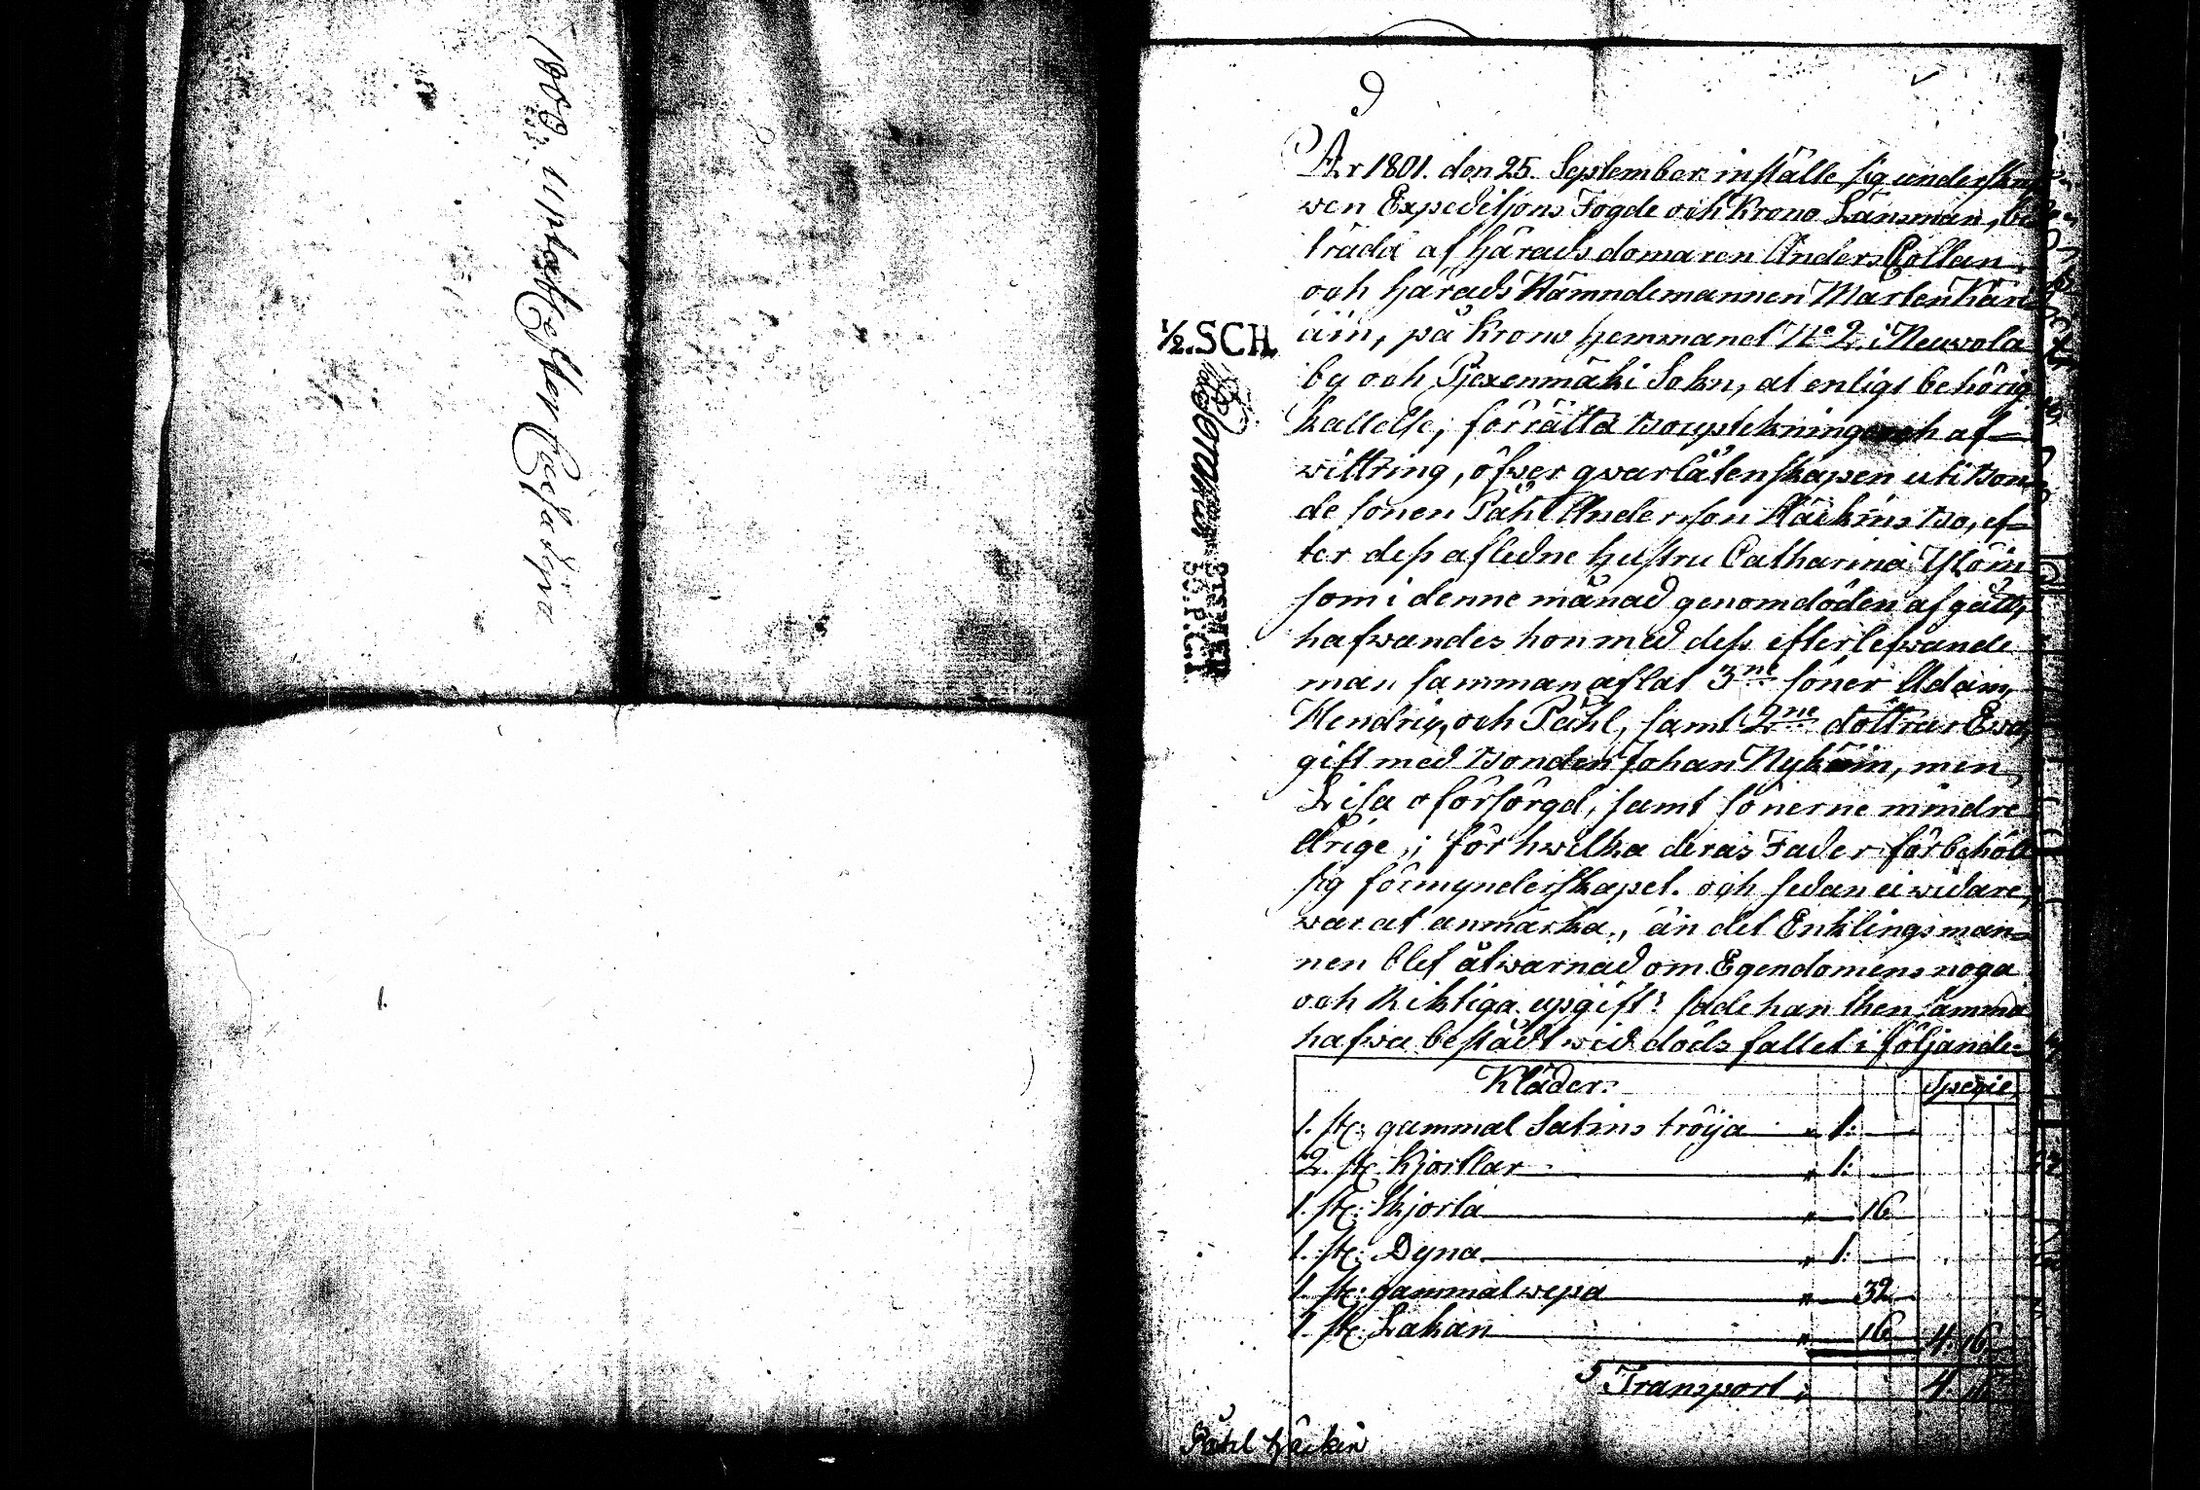 9
År 1801. den 25. September instälte sig underskref
wen Expeditjons Fogde och Krono Länsman, bi
trädd af Härads domaren Anders Collan,
och Härads Nämndemannen Marten Kári
äin, på Krono Hemmanet No 2. i Neuvola
½.SCH.
by och Pjexenmäki Sokn, at enligt behörig
kallelse, förrätta Bouptekning och af-
wittring, öfwer qwarlåtenskapen uti Bon
de sonen Påhl Anderson Häckins Bo, ef-
ter dess afledne Hustru Catharina Ylöin
som i denne månad genom döden afgått,
hafwandes hon med dess efterlefwande
man samman aflat 3ne söner Adam,
Hendric, och Påhl, samt 2ne döttrar Ewa,
gift med Bonden Johan Nykäin, men
Lisa oförsörgd, samt sönerne mindre
Årige; för hwilka deras Fader förbehölt
sig förmynderskapet. och sedan ei widare,
war at anmärka, än det Enklingsman-
nen blef åtwarnad om Egendomens noga
och Riktiga upgift: sade han then samma
hafwa bestådt wid döds fallet i följande:
Kläder: Spesie
1. st: gammal Satins tröija " 1: —
2. st: Kjortlar " 1: —
1. st: Skjorta " — 16
1. st: Dyna " 1: —
1. st: gammal wepa " — 32
1. st: Lakan " — 16 4: 16
Transport 4. 16
Påhl Häckin